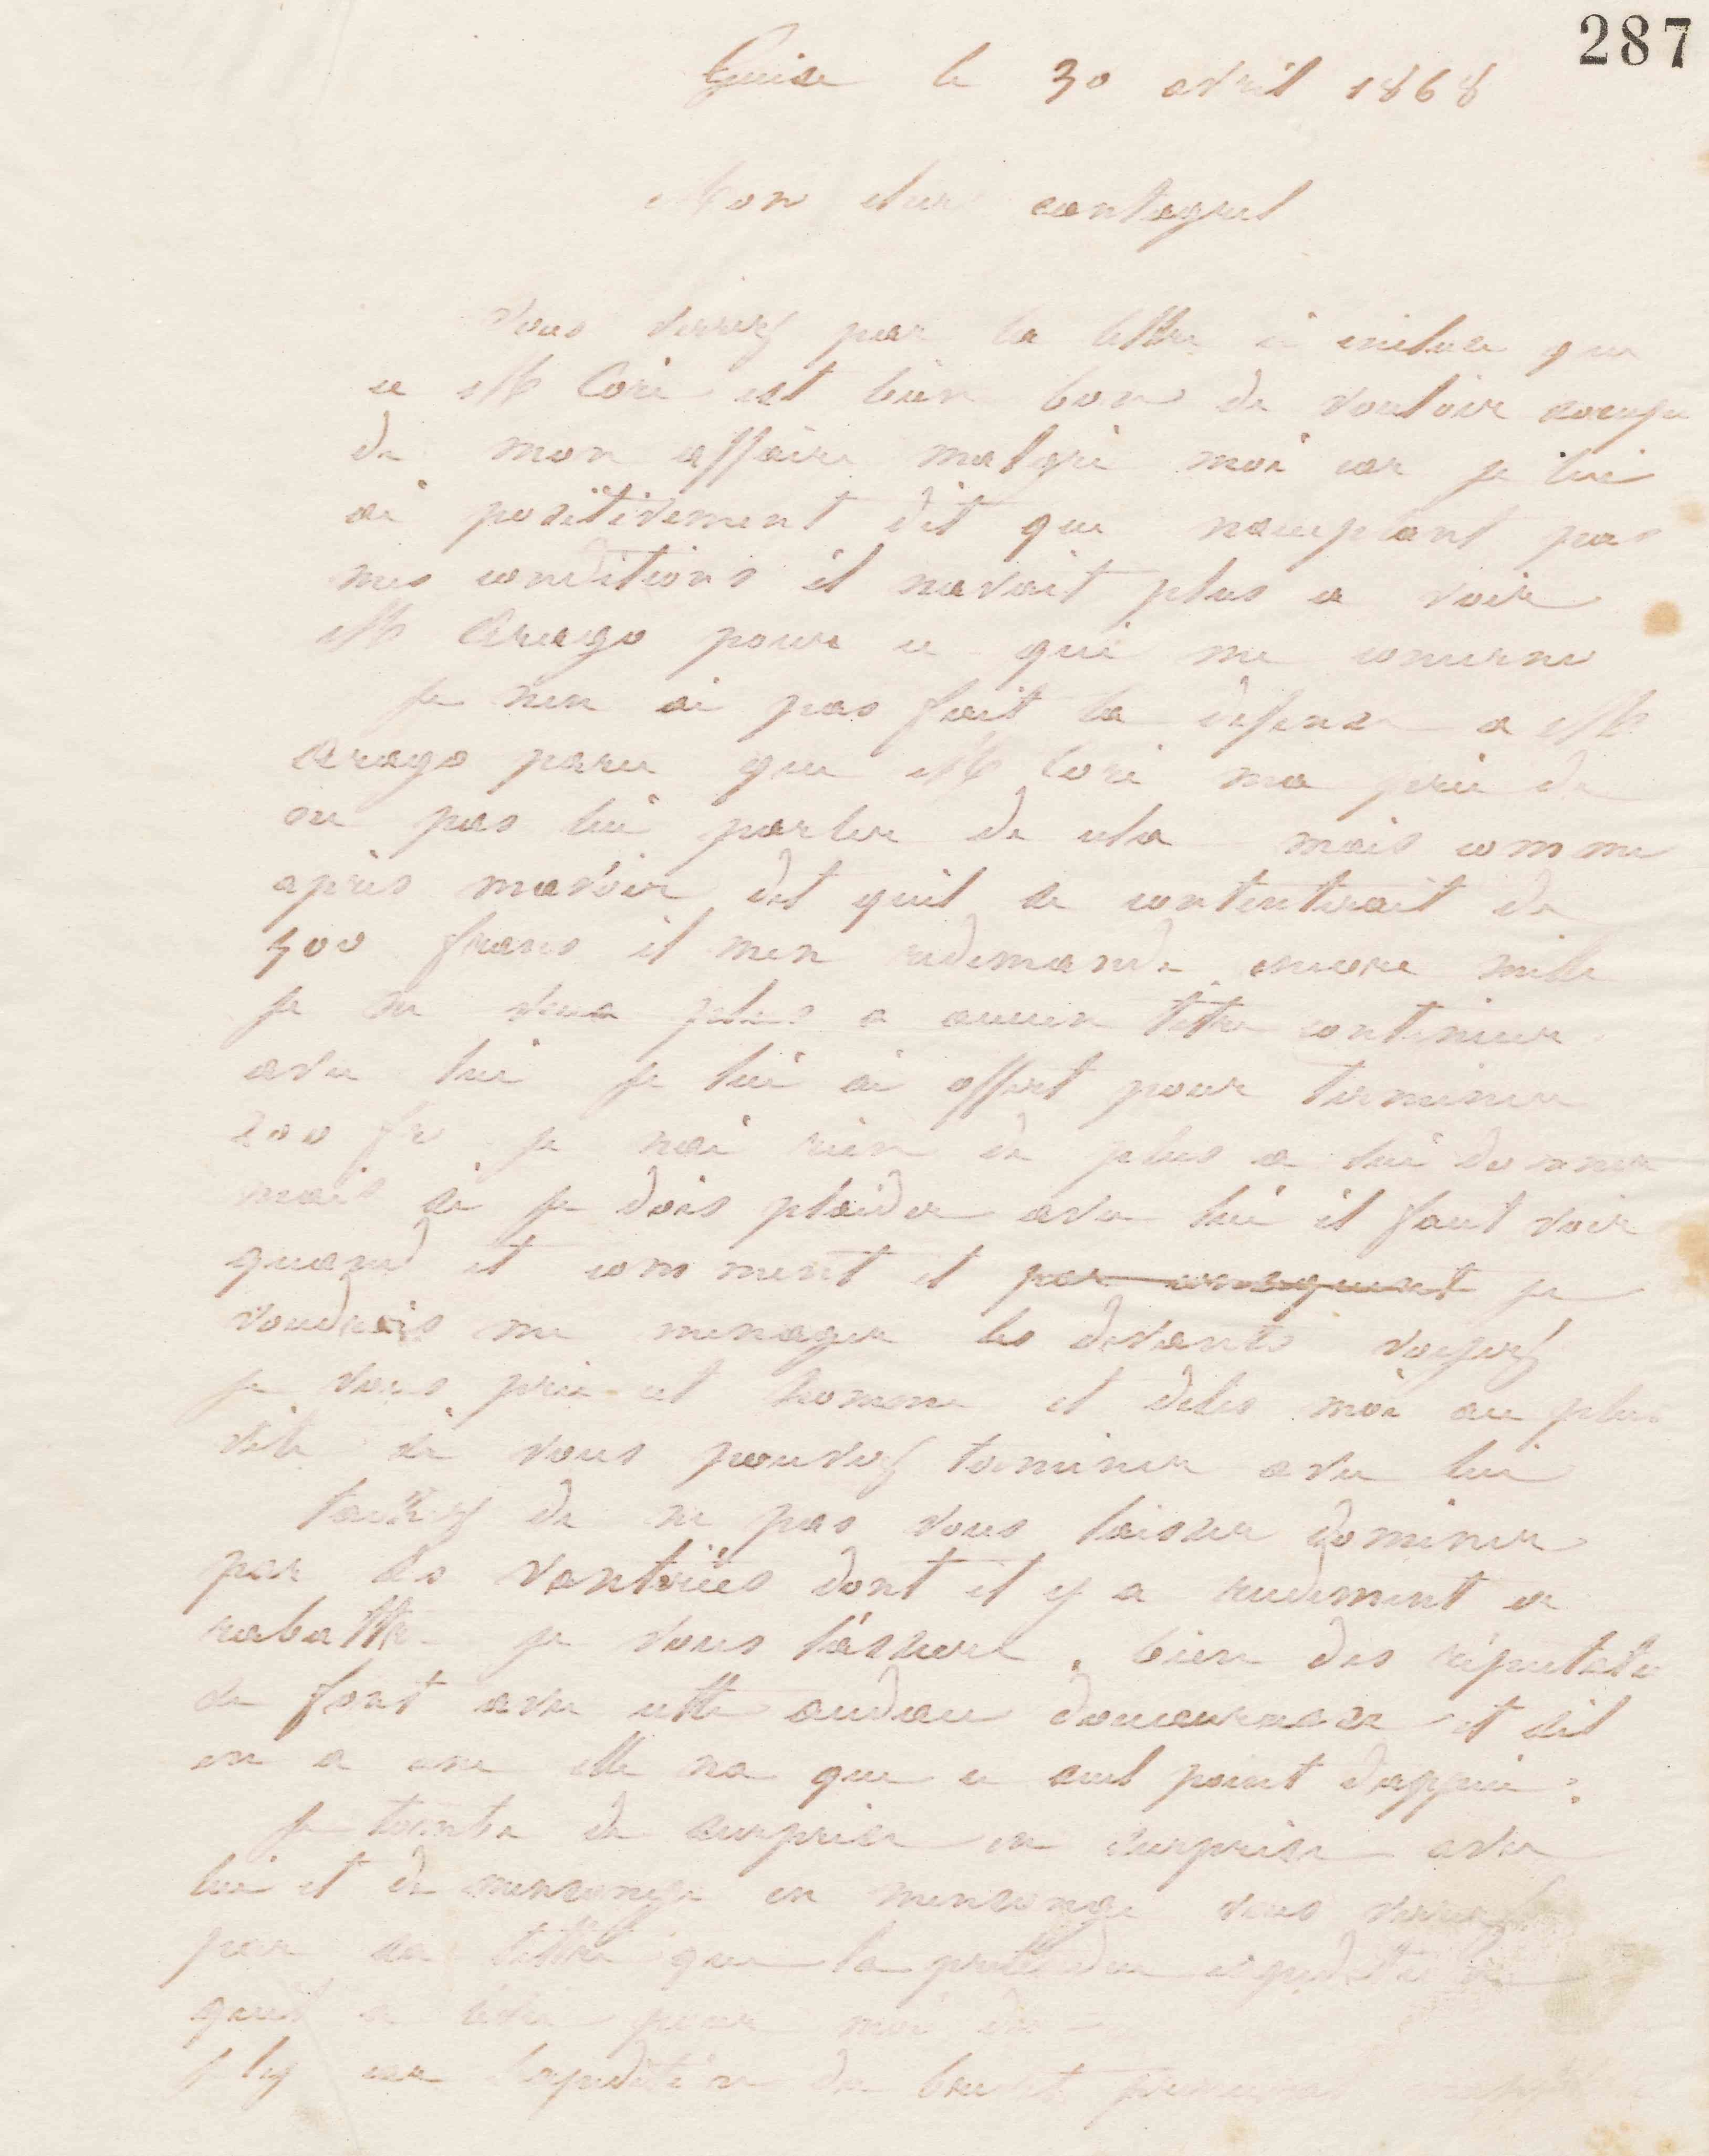 287
Guise le 30 avril 1868
Mon cher cantagrel
vous verrez par la lettre ci incluse que
ce Mr Coré est bien bon de vouloir
de mon affaire malgré moi car je lui
ai positivement dit que nacceptant pas
mes conditions il navait plus a voir
Mr Arago pour ce qui me concerne
je nen ai pas fait la defense a Mr
Arago parce que Mr Coré ma prié de
ne pas lui parler de cela mais comme
après mavoir dit quil se contenterait de
500 francs il men redemande encore mille
je ne veux plus a aucun titre continuer
avec lui je lui ai offert pour terminer
200 fr je nai rien de plus a lui donner
mais si je dois plaider avec lui il faut voir
quand et comment et par consequent je
voudrais me menager les devants voyez
je vous prie cet homme et dites moi au plus
vite si vous pouvez terminer avec lui
tachez de ne pas vous laisser dominer
par ses vanteries dont il y a rudement a
rabattre je vous l'assure. bien des réputations
se font avec cette audace et sil
en a une elle na que ce seul point dappui.
je tombe de surprise en surprise avec
lui et de mensonge en mensonge vous verrez
par sa lettre que la prettendue
pour moi
car de